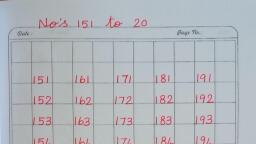 No's 151 to 20
Date :
Page No. :
151 161 171 181 191
152 162 172 182 192
153 163 173 183 193
154 164 174 184 194